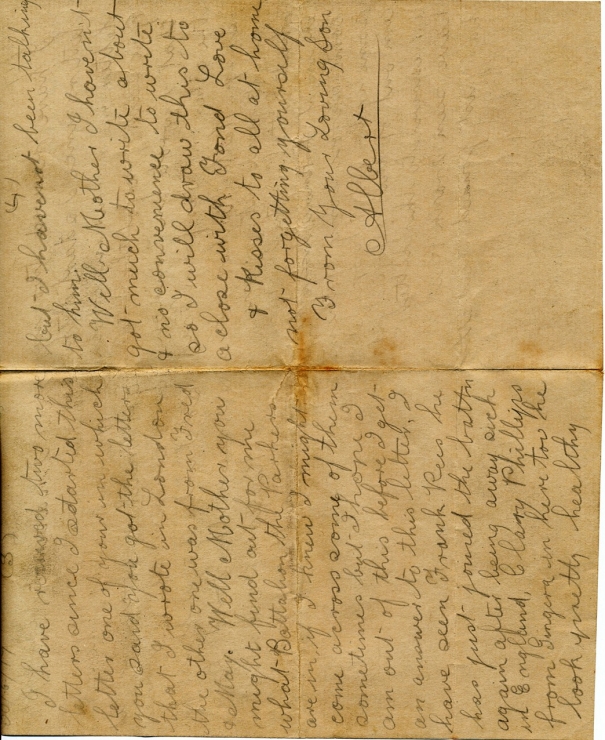 (3)
I have received two more
letters since I started this
letter one of your in which
you said you got the letters
that I wrote in London
the other one was from Fred
& May. Well Mother you
might find out for me
what Battalion the Parkers
are in if I knew I might
come across some of them
sometimes but I hope I
am out of this before I get
an answer to this letter, I
have seen Frank Rees he
has just joined the battn
again after being away sick
in England, Clary Phillips
from in here too he
look pretty healthy
4)
but I have not been talking
to him.
Well Mother I haven't
got much to write about
& no convenience to write
so I will draw this to
a close with Fond Love
& Kisses to all at home
not forgetting yourself
From Your Loving Son
Albert